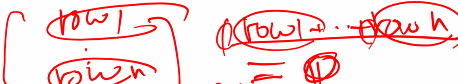 row1 row1 + ... row n
row n = 0